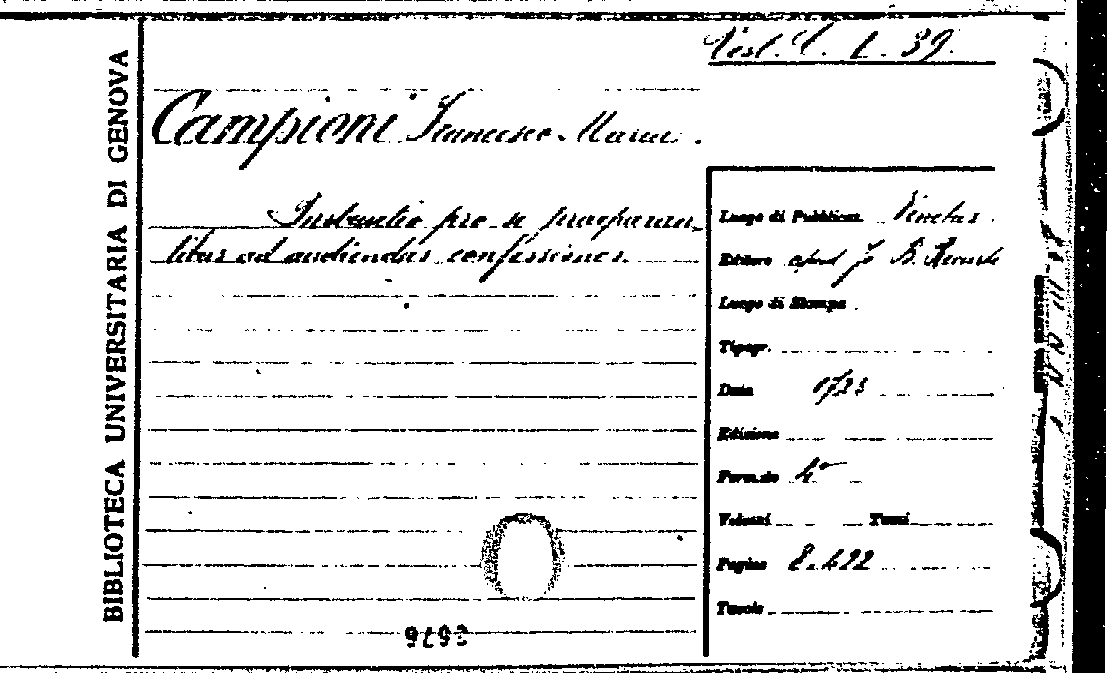 BIBLIOTECA UNIVERSITARIA DI GENOVA
Vest. 1. 39.
Campioni Francesco Maria.
Instructio pro se praeparan-
tibus ad audiendas confessiones.
Luogo di Pubblicaz. Venetiis.
Editore apud Jo B.
Luogo di Stampa
Tipogr.
Data 1723
Edizione
Formato 4°
Volumi Tomi
Pagine 8.422
Tavole